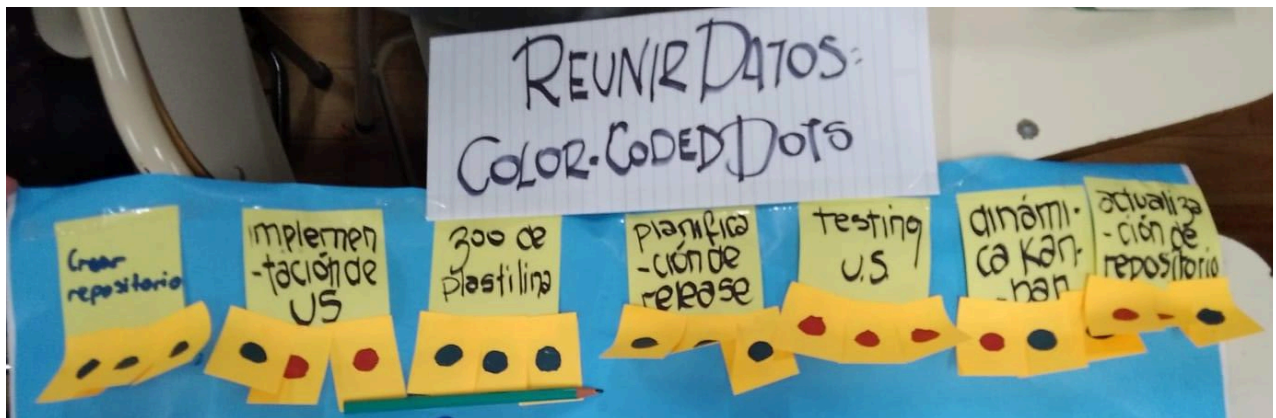 REUNIR DATOS:
COLOR-CODED DOTS
Crear
repositorio
implemen
-tación de
US
zoo de
plastilina
planifica
-ción de
release
testing
U.S.
dinámi-
ca Kan-
-ban
actualiza
-ción de
repositorio